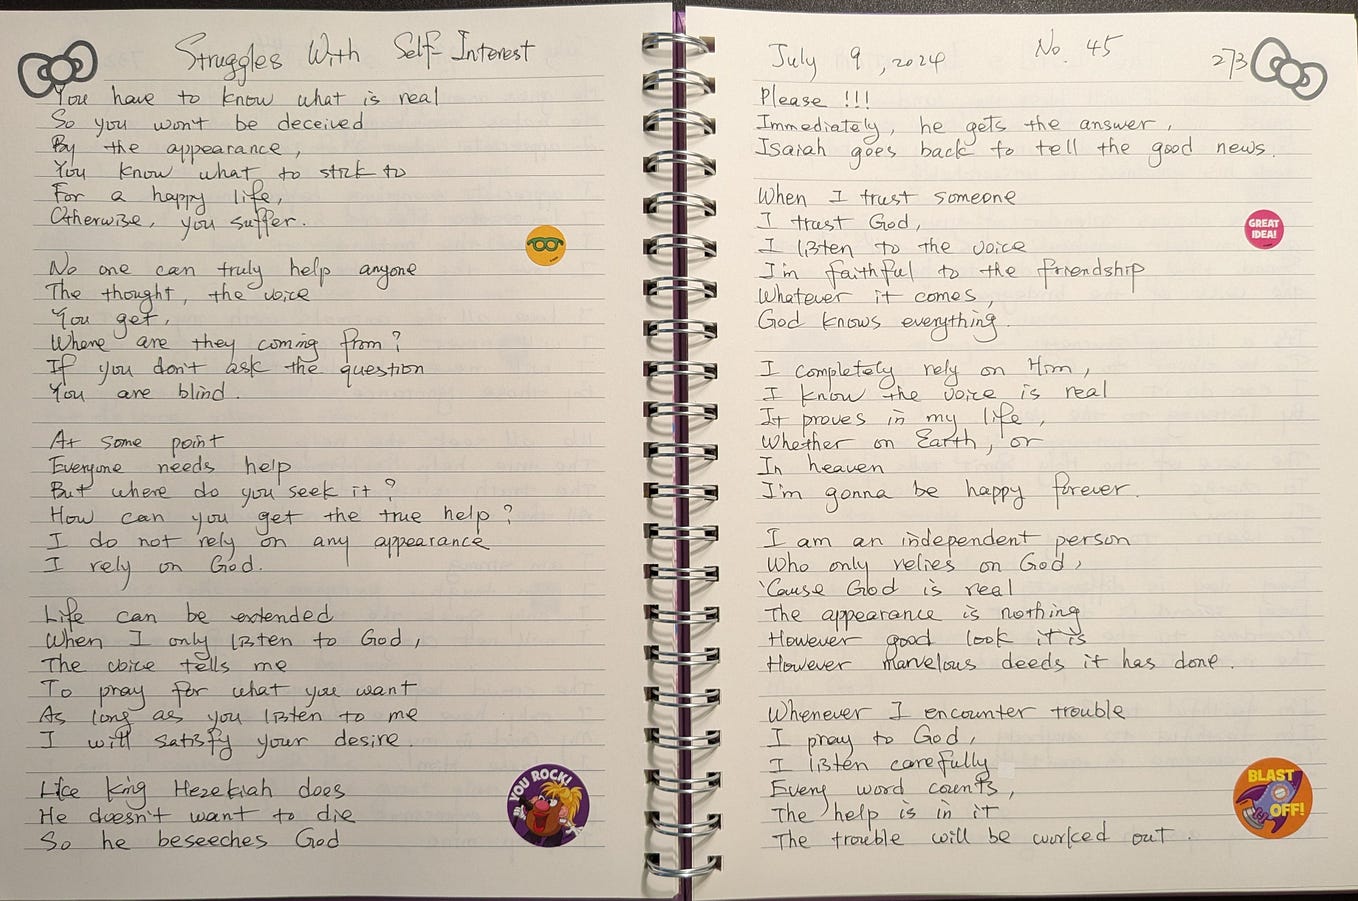 Struggles With Self-Interest
You have to know what is real
So you won't be deceived
By the appearance,
You know what to stick to
For a happy life,
Otherwise, you suffer.
No one can truly help anyone
The thought, the voice
You get,
Where are they coming from?
If you don't ask the question
You are blind.
At some point
Everyone needs help
But where do you seek it?
How can you get the true help?
I do not rely on any appearance
I rely on God.
Life can be extended
When I only listen to God,
The voice tells me
To pray for what you want
As long as you listen to me
I will satisfy your desire.
Like king Hezekiah does
He doesn't want to die
So he beseeches God
YOU ROCK!
July 9, 2024 No. 45 273
Please !!!
Immediately, he gets the answer,
Isaiah goes back to tell the good news.
When I trust someone
I trust God,
I listen to the voice
I'm faithful to the friendship
Whatever it comes,
God knows everything.
GREAT
IDEA!
I completely rely on Him,
I know the voice is real
It proves in my life,
Whether on Earth, or
In heaven
I'm gonna be happy forever.
I am an independent person
Who only relies on God,
'Cause God is real
The appearance is nothing
However good look it is
However marvelous deeds it has done.
Whenever I encounter trouble
I pray to God,
I listen carefully
Every word counts,
The help is in it
The trouble will be worked out.
BLAST
OFF!